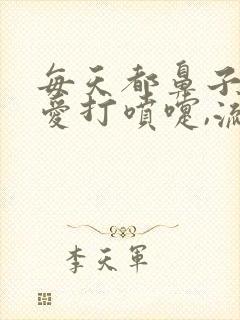 每天都鼻子
爱打喷嚏,流
李天军